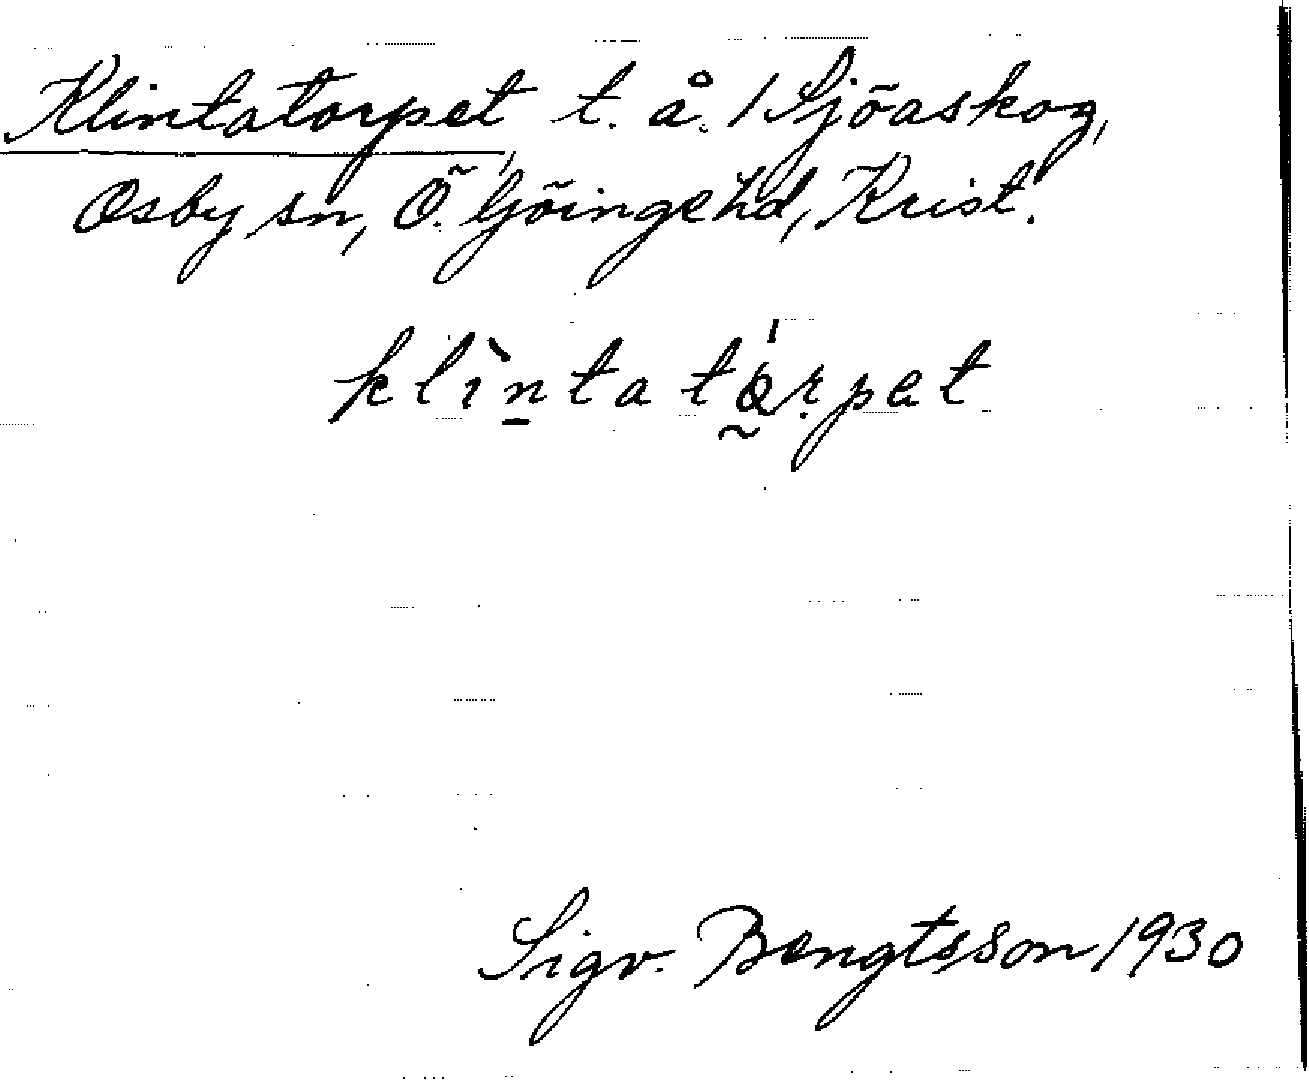 Klintatorpet t. å. 1 Sjöaskog,
Osby sn, Ö. Göinge hd, Krist.
klìn̠tatǫ́rpet
Sigv. Bengtsson 1930